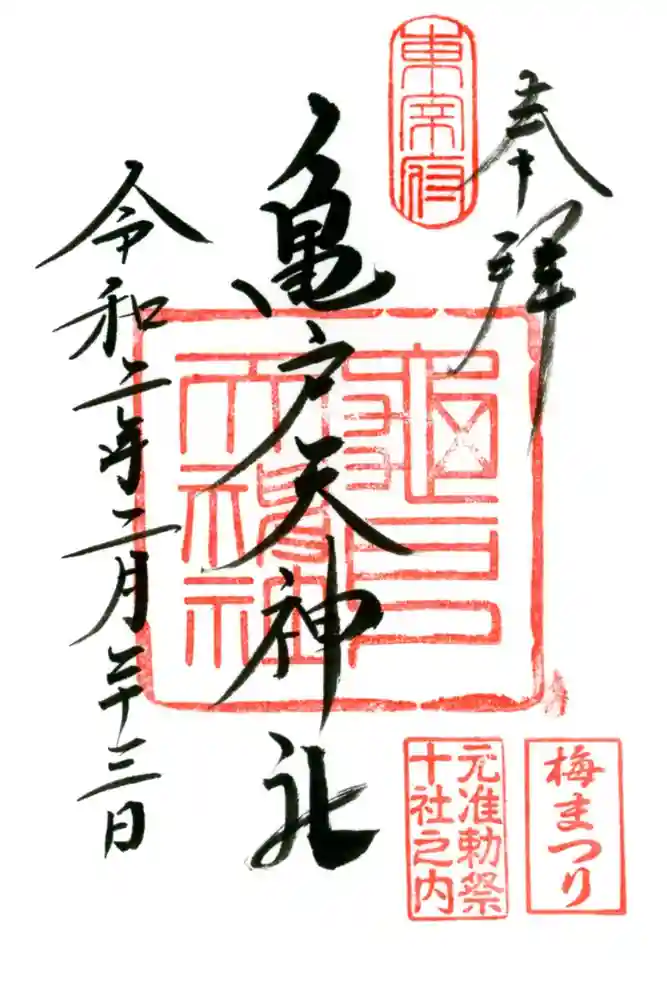 奉拝
東宰府
亀戸天神社
令和二年二月二十三日
梅まつり
元准勅祭
十社之内